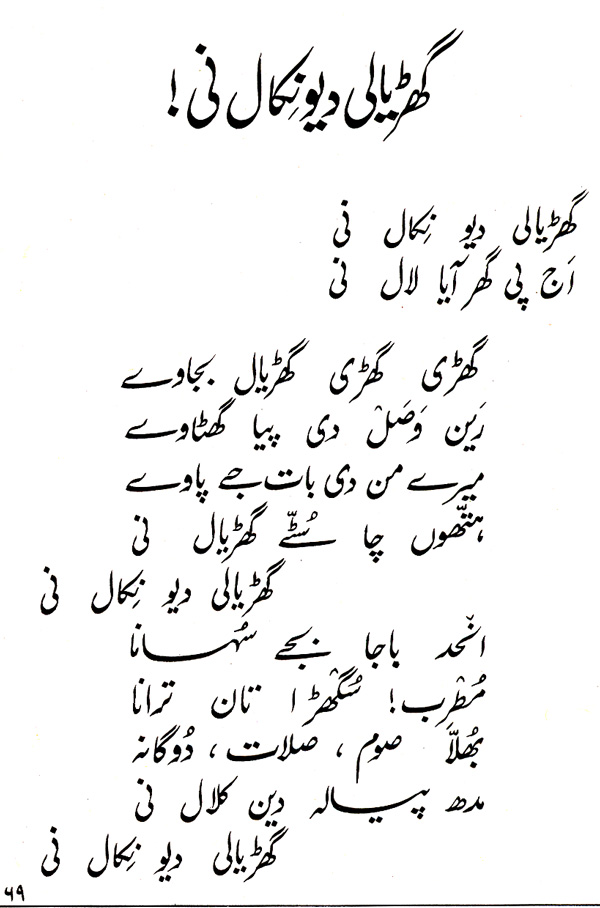 گھڑیالی دیو نِکال نی!
گھڑیالی دیو نِکال نی
اَج پی گھر آیا لال نی
گھڑی گھڑی گھڑیال بجاوے
رَین وَصَلْ دی پیا گھٹاوے
میرے من دی بات جے پاوے
ہتّھوں چا سُٹّے گھڑیال نی
گھڑیالی دیو نِکال نی
انحد باجا بجے سُہانا
مُطْرِب! سُگھڑا تان ترانا
بُھلّا صوم، صلات، دُوگانہ
مدھ پیالہ دین کلال نی
گھڑیالی دیو نِکال نی
۶۹